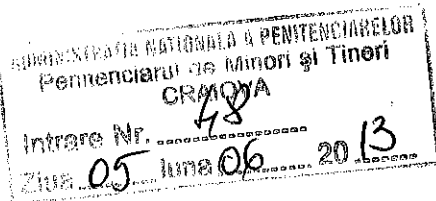 ADMINISTRATIA NATIONALA A PENITENCIARELOR
Penitenciarul de Minori și Tineri
CRAIOVA
Intrare Nr. 48
Ziua 05 luna 06 2013